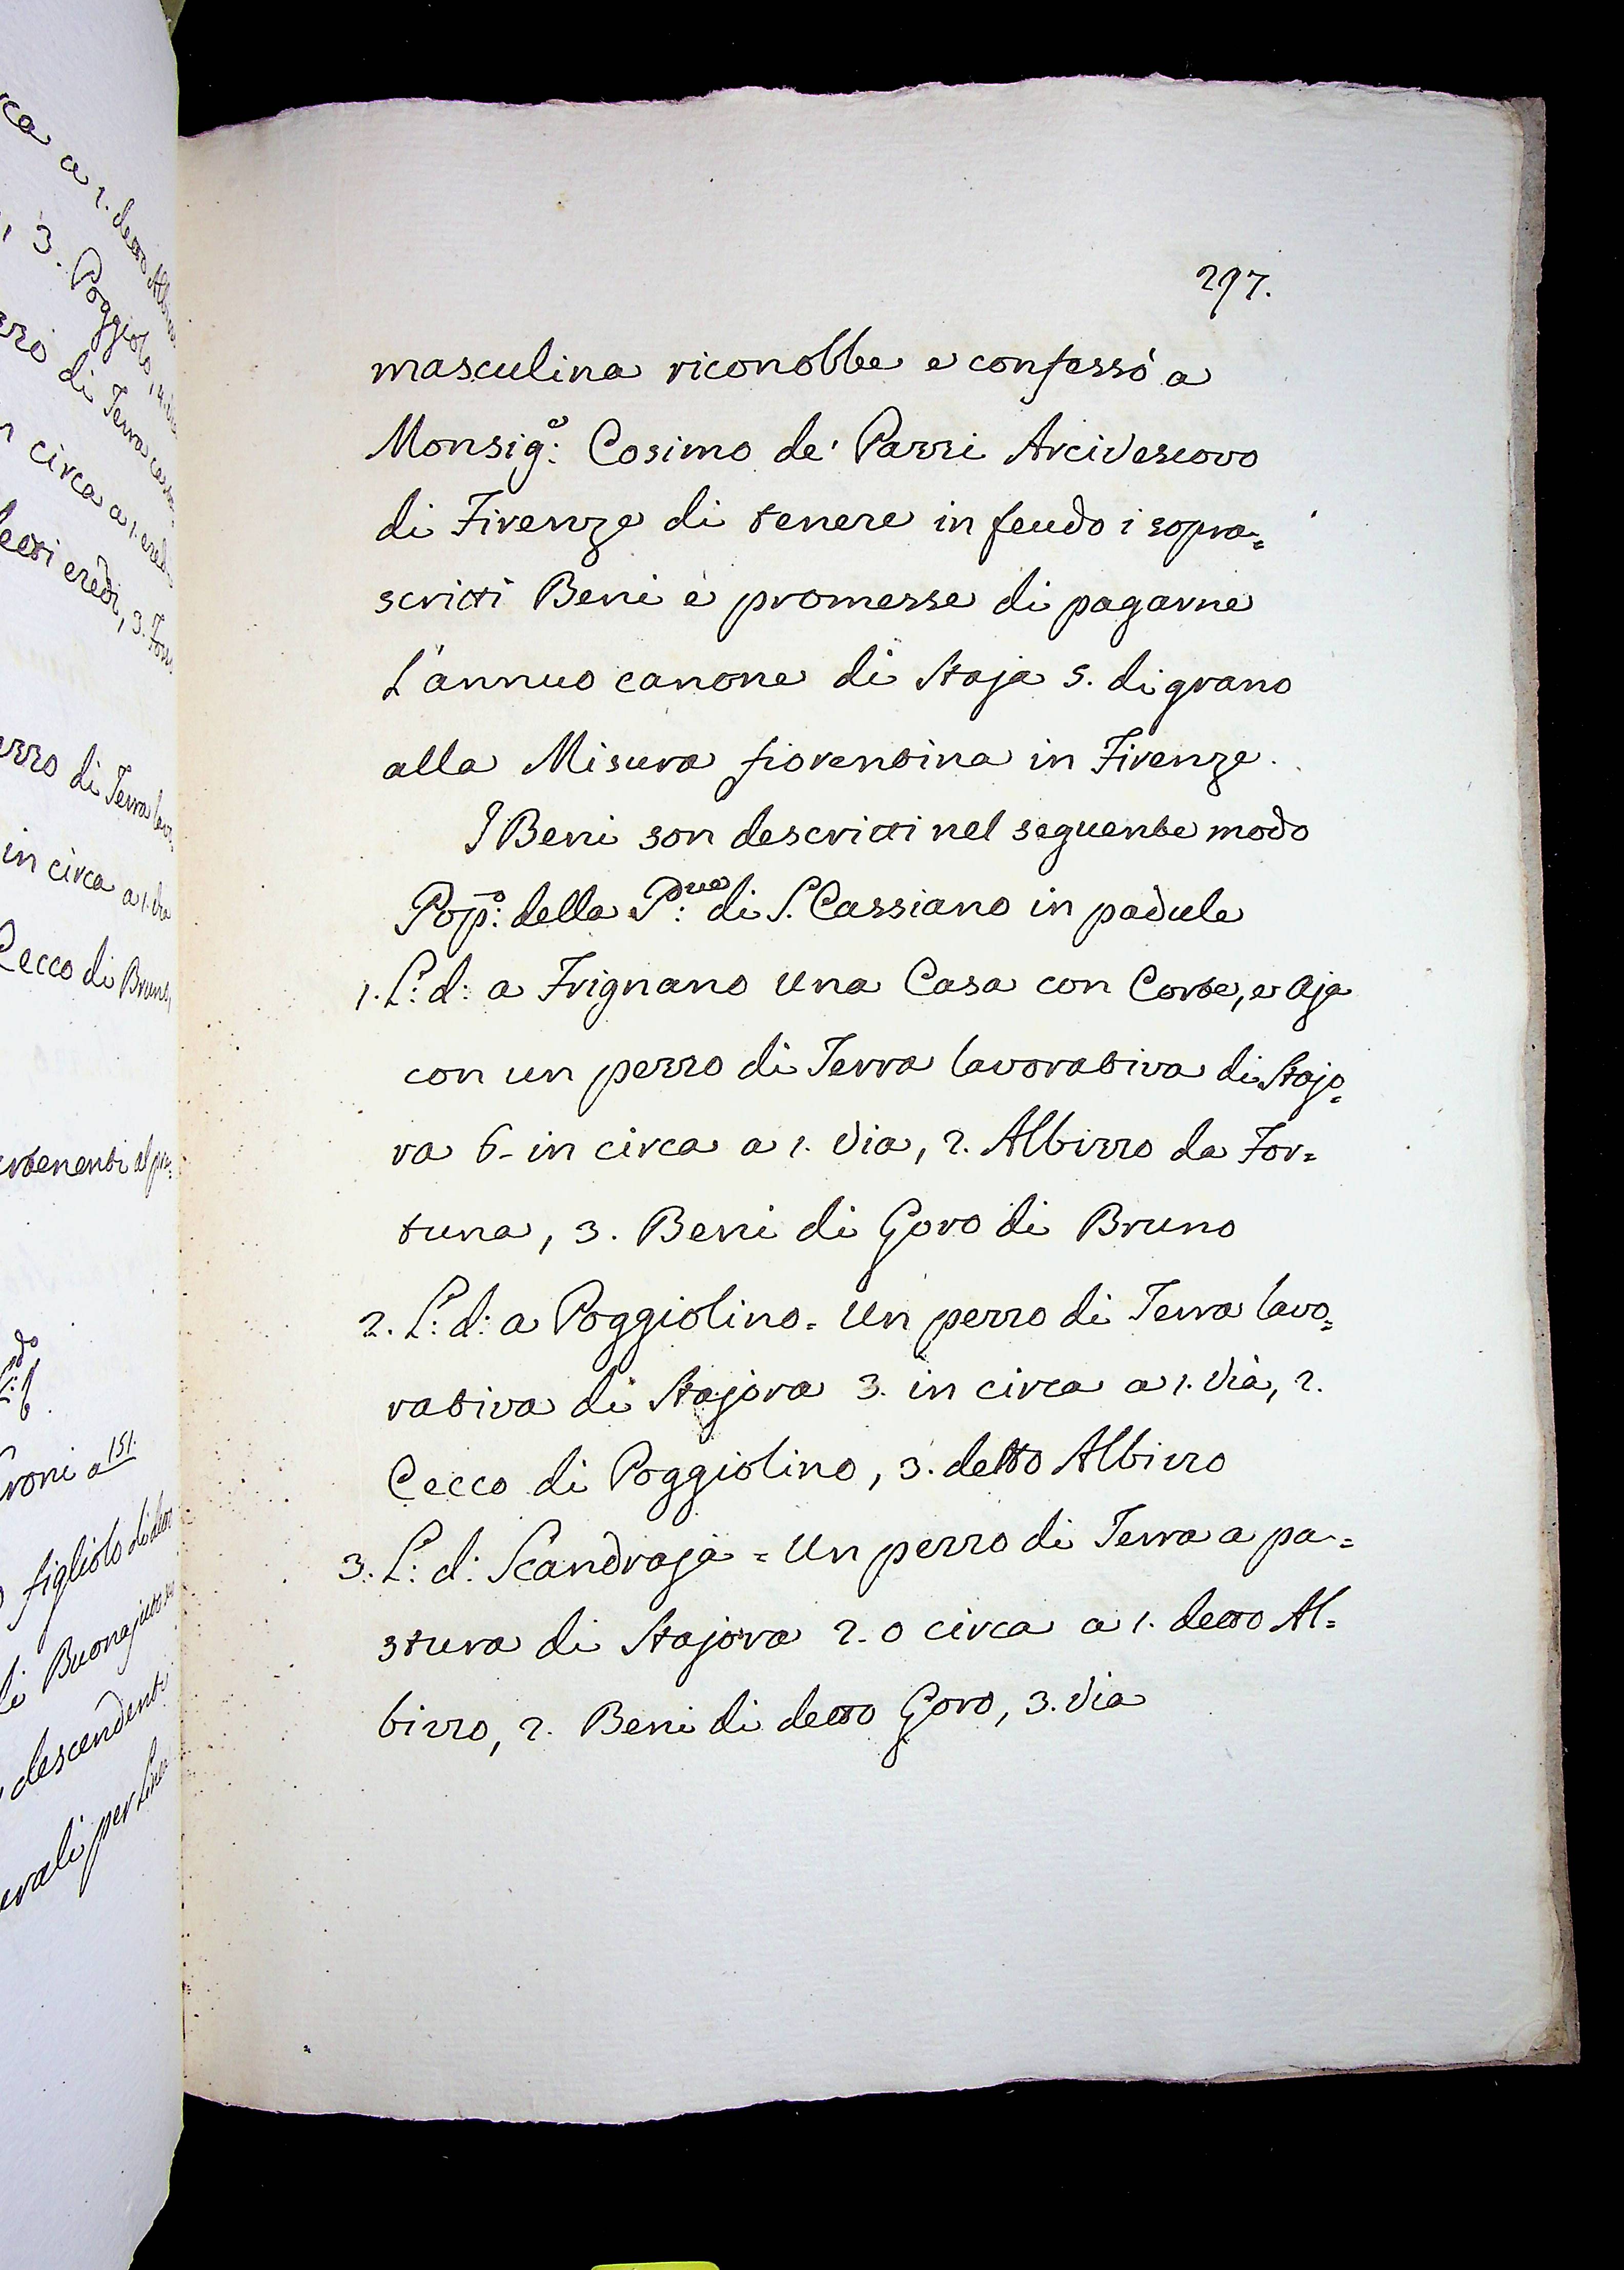 297.
masculina riconobbe e confessò a
Monsig.e: Cosimo de' Pazzi Arcivescovo
di Firenze di tenere in feudo i sopra=
scritti Beni e promesse di pagarne
L'annuo canone di Staja 5. di grano
alla Misura fiorentina in Firenze.
I Beni son descritti nel seguente modo
Pop.o: della P.ve: di S. Cassiano in padule
1. L: d: a Frignano una Casa con Corte, e Aja
con un pezzo di Terra lavorativa di Stajo=
ra 6- in circa a 1. via, 2. Albizzo da For=
tuna, 3. Beni di Goro di Bruno
2. L: d: a Poggiolino = Un pezzo di Terra lavo=
rativa di Stajora 3. in circa a 1. via, 2.
Cecco di Poggiolino, 3. detto Albizzo
3. L: d: Scandraja = Un pezzo di Terra a pa=
stura di Stajora 2. o circa a 1. detto Al=
bizzo, 2. Beni di detto Goro, 3. via